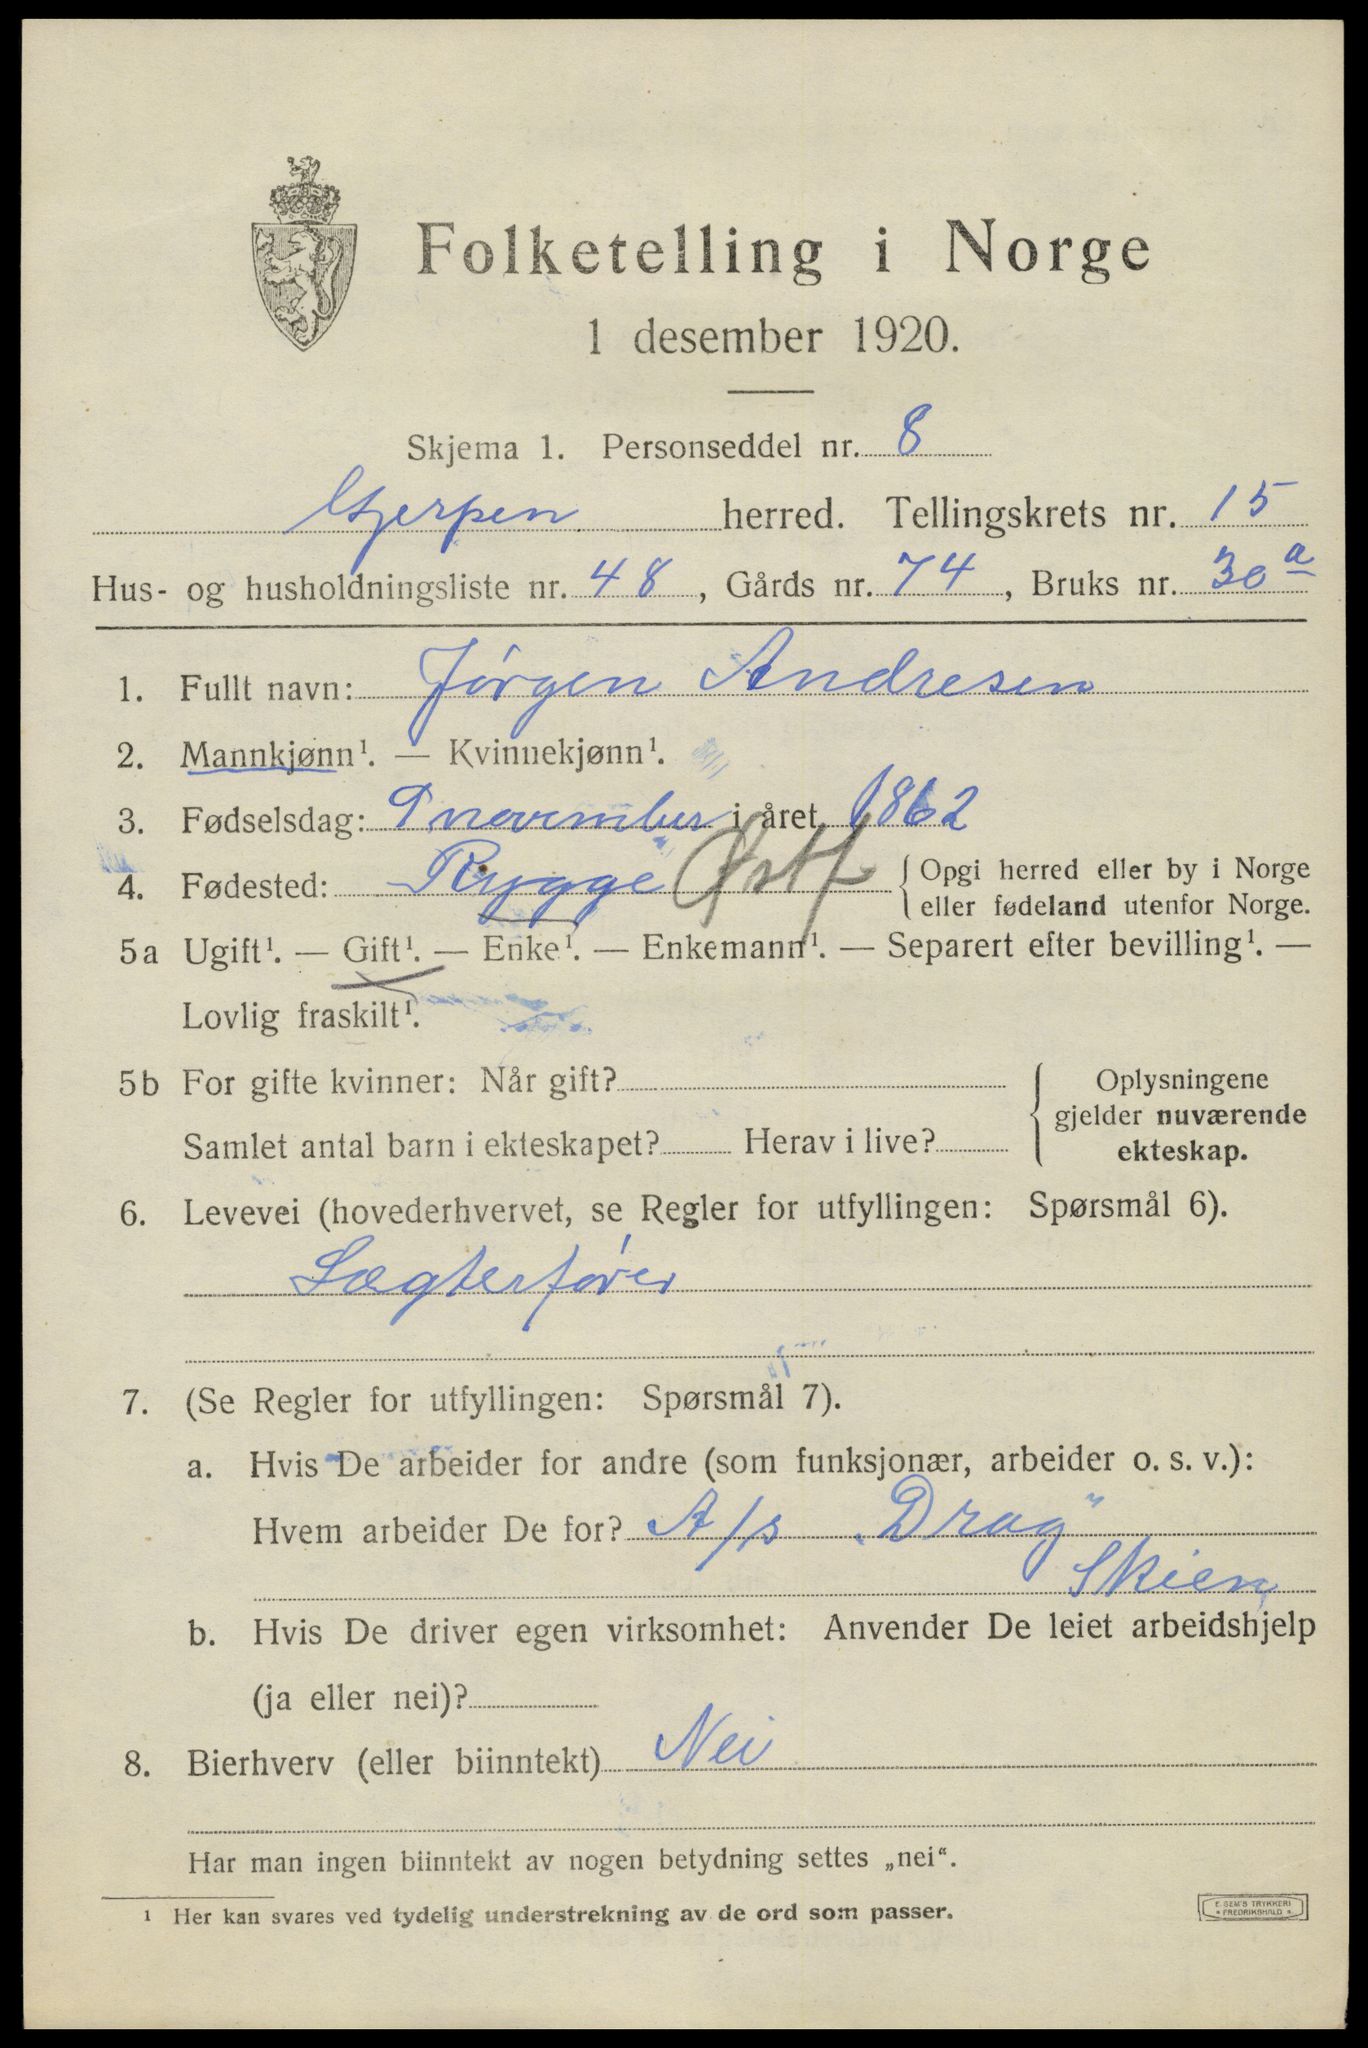 Folketelling i Norge
1 desember 1920.
Skjema 1. Personseddel nr. 8
Gjerpen herred. Tellingskrets nr. 15
Hus- og husholdningsliste nr. 48, Gårds nr. 74, Bruks nr. 30 a
1. Fullt navn: Jørgen Andresen
2. Mannkjønn¹. — Kvinnekjønn¹.
3. Fødselsdag: 9 november i året 1862
4. Fødested: Rygge Østf { Opgi herred eller by i Norge
eller fødeland utenfor Norge.
5a Ugift¹. — Gift¹. — Enke¹. — Enkemann¹. — Separert efter bevilling¹. —
Lovlig fraskilt¹.
5b For gifte kvinner: Når gift? Oplysningene
gjelder nuværende
Samlet antal barn i ekteskapet? Herav i live? ekteskap.
6. Levevei (hovederhvervet, se Regler for utfyllingen: Spørsmål 6).
Lægterfører
7. (Se Regler for utfyllingen: Spørsmål 7).
a. Hvis De arbeider for andre (som funksjonær, arbeider o. s. v.):
Hvem arbeider De for? A/s „Drag"
Skien
b. Hvis De driver egen virksomhet: Anvender De leiet arbeidshjelp
(ja eller nei)?
8. Bierhverv (eller biinntekt) Nei
Har man ingen biinntekt av nogen betydning settes „nei“.
¹ Her kan svares ved tydelig understrekning av de ord som passer.
E. SEM'S TRYKKERI
FREDRIKSHALD